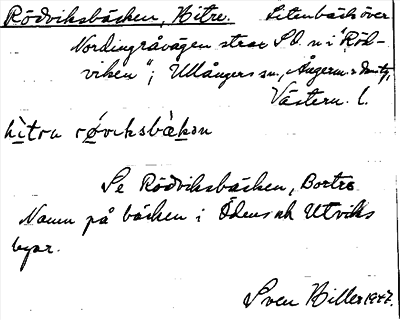 Rödviksbäcken, Hitre. Liten bäck över
Nordingråvägen strax SO. n i "Röd-
viken"; Ullångers sn,, Ångerm.
Västern. l.
hìtra røviksbækən
Se Rödviksbäcken, Bortre
Namn på bäcken i Ödens och Utviks
byar.
Sven Hiller 1947.